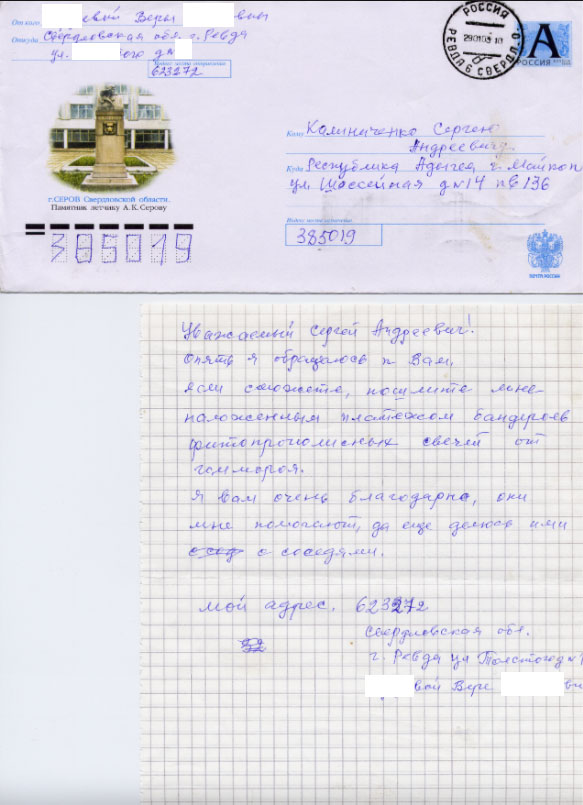 От кого евой Веры овны
Откуда Свердловская обл. г. Ревда
ул. ого д№
Индекс места отправления
623272
РОССИЯ
РЕВДА 6 СВЕРДЛ.О
А
РОССИЯ
г.СЕРОВ Свердловской области.
Памятник летчику А.К.Серову
Кому Калиниченко Сергею
Андреевичу
Куда Республика Адыгея г. Майкоп
ул Шоссейная д№14 кв 136
Индекс места назначения
385019
ПОЧТА РОССИИ
385019
Уважаемый Сергей Андреевич!
Опять я обращаюсь к Вам,
если сможете, пошлите мне
наложенным платежом бандеров
фитопрополисных свечей от
гемороя.
Я вам очень благодарна, они
мне помогают, да еще делюсь ими
с соседями.
Мой адрес. 623272
Свердловская обл.
г. Ревда ул Толстого д№
вой Вере